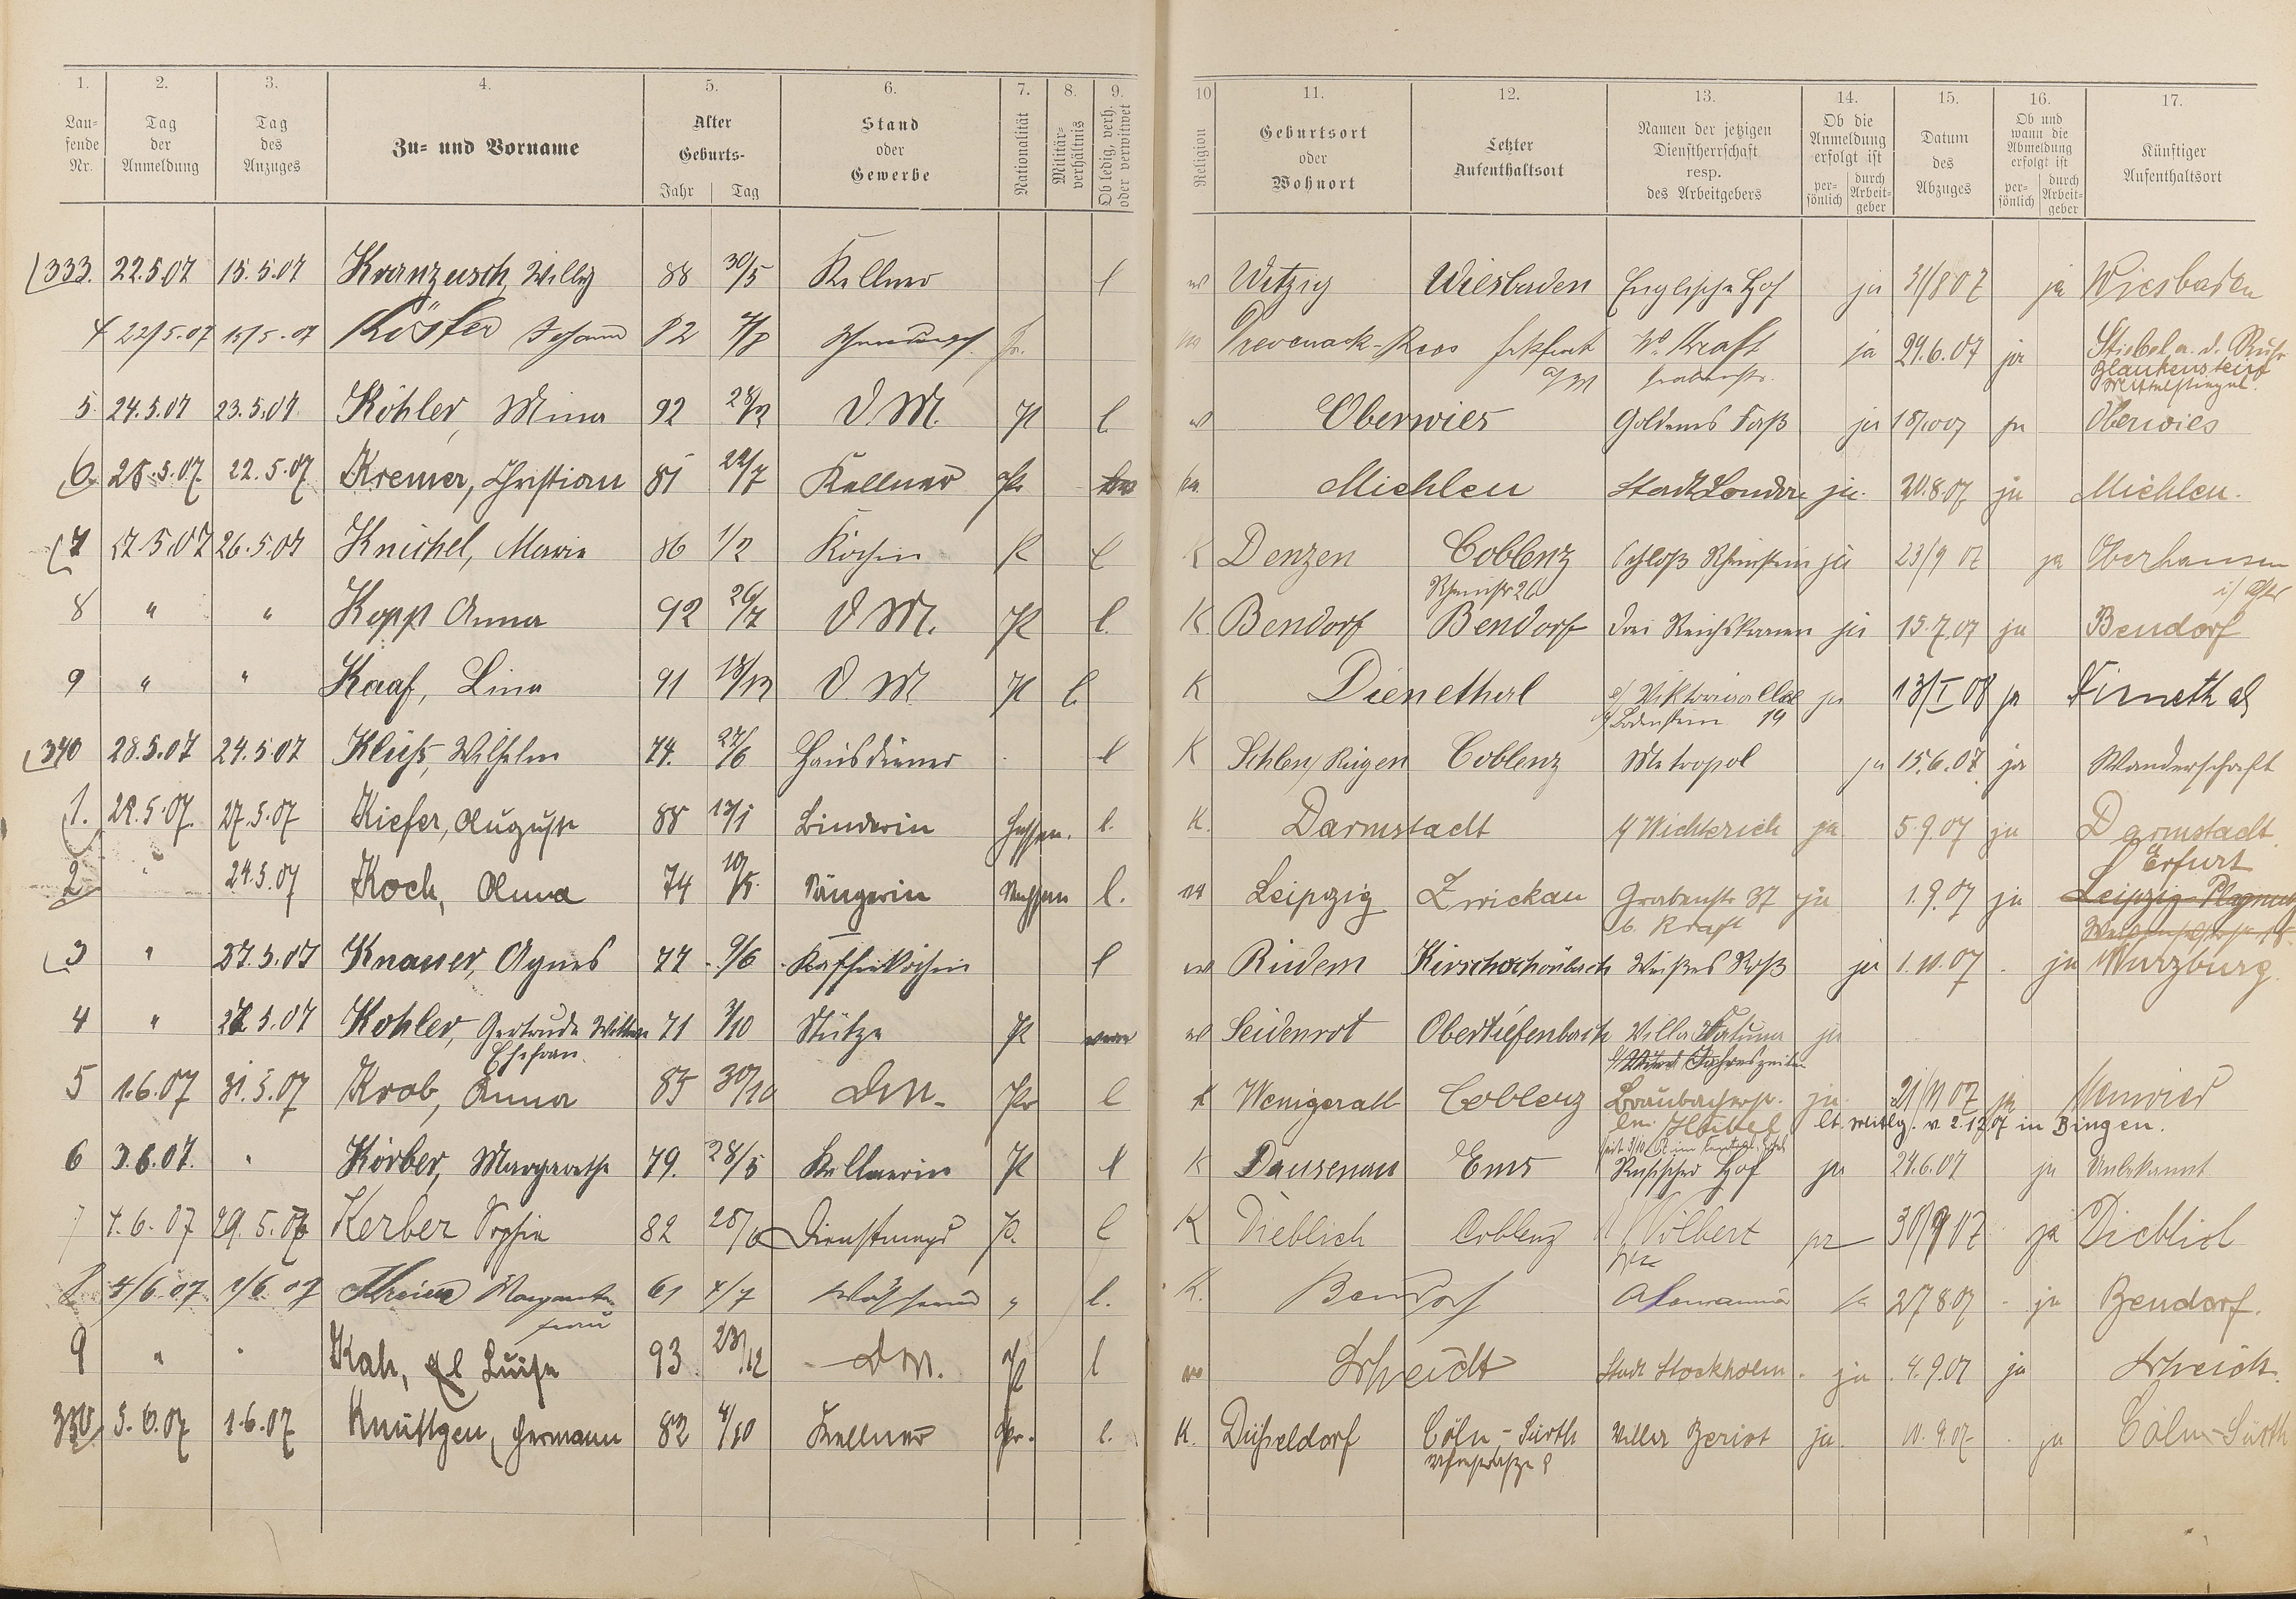 1. 2. 3. 4. 5. 6. 7. 8. 9. 10 11. 12. 13. 14. 15. 16. 17.
Laufende Nr. Tag der Anmeldung Tag des Anzuges Zu- und Vorname Alter Geburts- Jahr Tag Stand oder Gewerbe Nationalität Militärverhältnis Ob ledig, verh. oder verwitwet Religion Geburtsort oder Wohnort Letzter Aufenthaltsort Namen der jetzigen Dienstherrschaft resp. des Arbeitgebers Ob die Anmeldung erfolgt ist persönlich durch Arbeitgeber Datum des Abzuges Ob und wann die Abmeldung erfolgt ist persönlich durch Arbeitgeber Künftiger Aufenthaltsort
333. 22.5.07 15.5.07 Kranzusch, Willy 88 30/5 Kellner l Witzig Wiesbaden Englischer Hof ja 31/8 07 ja Wiesbaden
4 22/5.07 15/5.07 Köster Johann 82 W. Kraft ja 29.6.07 ja Stiebel a. d. Ruhr
Blankenstein
5. 24.5.07 23.5.07 Köhler, Mina 92 D M. Pr l. Oberwies Goldenes Faß ja ja Oberwies
6. 25.5.07 22.5.07 Kremer, Christian 81 22/7 Kellner Pr Miehlen Stadt London ja. 20.8.07 ja Miehlen.
7 27.5.07 26.5.07 Knichel, Maria 86 1/2 Köchin Pr l K Denzen Coblenz Schloß Rheinstein ja 23/9 07 ja Oberhausen
Rheinstr 26
8 " " Kopp Anna 92 26/7 D M. Pr l. K. Bendorf Bendorf Drei Reichskronen ja 15.7.07 ja Bendorf
9 " " Kaaf, Lina 91 18/12 D M Pr l. K Dienethal Viktoriaallee ja 13/I 08 ja
19
340 28.5.07 24.5.07 Wilhelm 74. 27/6 Hausdiener l K Coblenz Metropol ja 15.6.07 ja Wanderschaft
1. 28.5.07. 27.5.07 Kiefer, Auguste 88 13/1 Binderin Hessen. l. K. Darmstadt ja 5.9.07 ja Darmstadt
Erfurt
2 " 24.5.07 Koch, Anna 74 10/5. Sängerin Sachsen l. Leipzig Zwickau Grabenstr 37 ja 1.9.07 ja Leipzig-Plagwitz
b. Kraft
3 " 27.5.07 Knauer, Agnes 77 9/6 Kaffeeköchin l Rüdern Kirschschönbach Weißes Roß ja 1.10.07 ja Würzburg
4 " 5.07 Kohler, Gertrude Witwe 71 3/10 Stütze Pr Seidenrot Obertiefenbach Villa Fatima ja
Ehefrau
Jahreszeiten
5 1.6.07 31.5.07 Krob, Anna 85 30/10 D M. Pr l K Wenigerath Coblenz Braubacherstr. ja 21/11 07 ja Neuwied
lt. Mitlg. v. 2.12.07 in Bingen.
6 3.6.07. " Körber, Margarethe 79. 28/5 Kellnerin Pr l K Dausenau Ems Russischer Hof ja 24.6.07 ja Unbekannt
7 4.6.07 29.5.07 Kerber Sophie 82 25/6 Dienstmagd P. l K Dieblich Coblenz Wolbert ja 30/9 07 ja Dieblich
8 4/6.07 1/6.07 61 4/7 " l. K. Bendorf Alemannia ja 27 8 07 ja Bendorf.
frau
9 " " Kah, Luise 93 23/12 D M. Pr l Scheidt Stadt Stockholm. ja 4.9.07 ja Scheidt.
350 5.6.07 1.6.07 Knüttgen, Hermann 82 4/10 Kellner Pr. l. K. Düsseldorf Cöln-Sürth Villa Beriot ja. 10.9.07 ja Cöln-Sürth